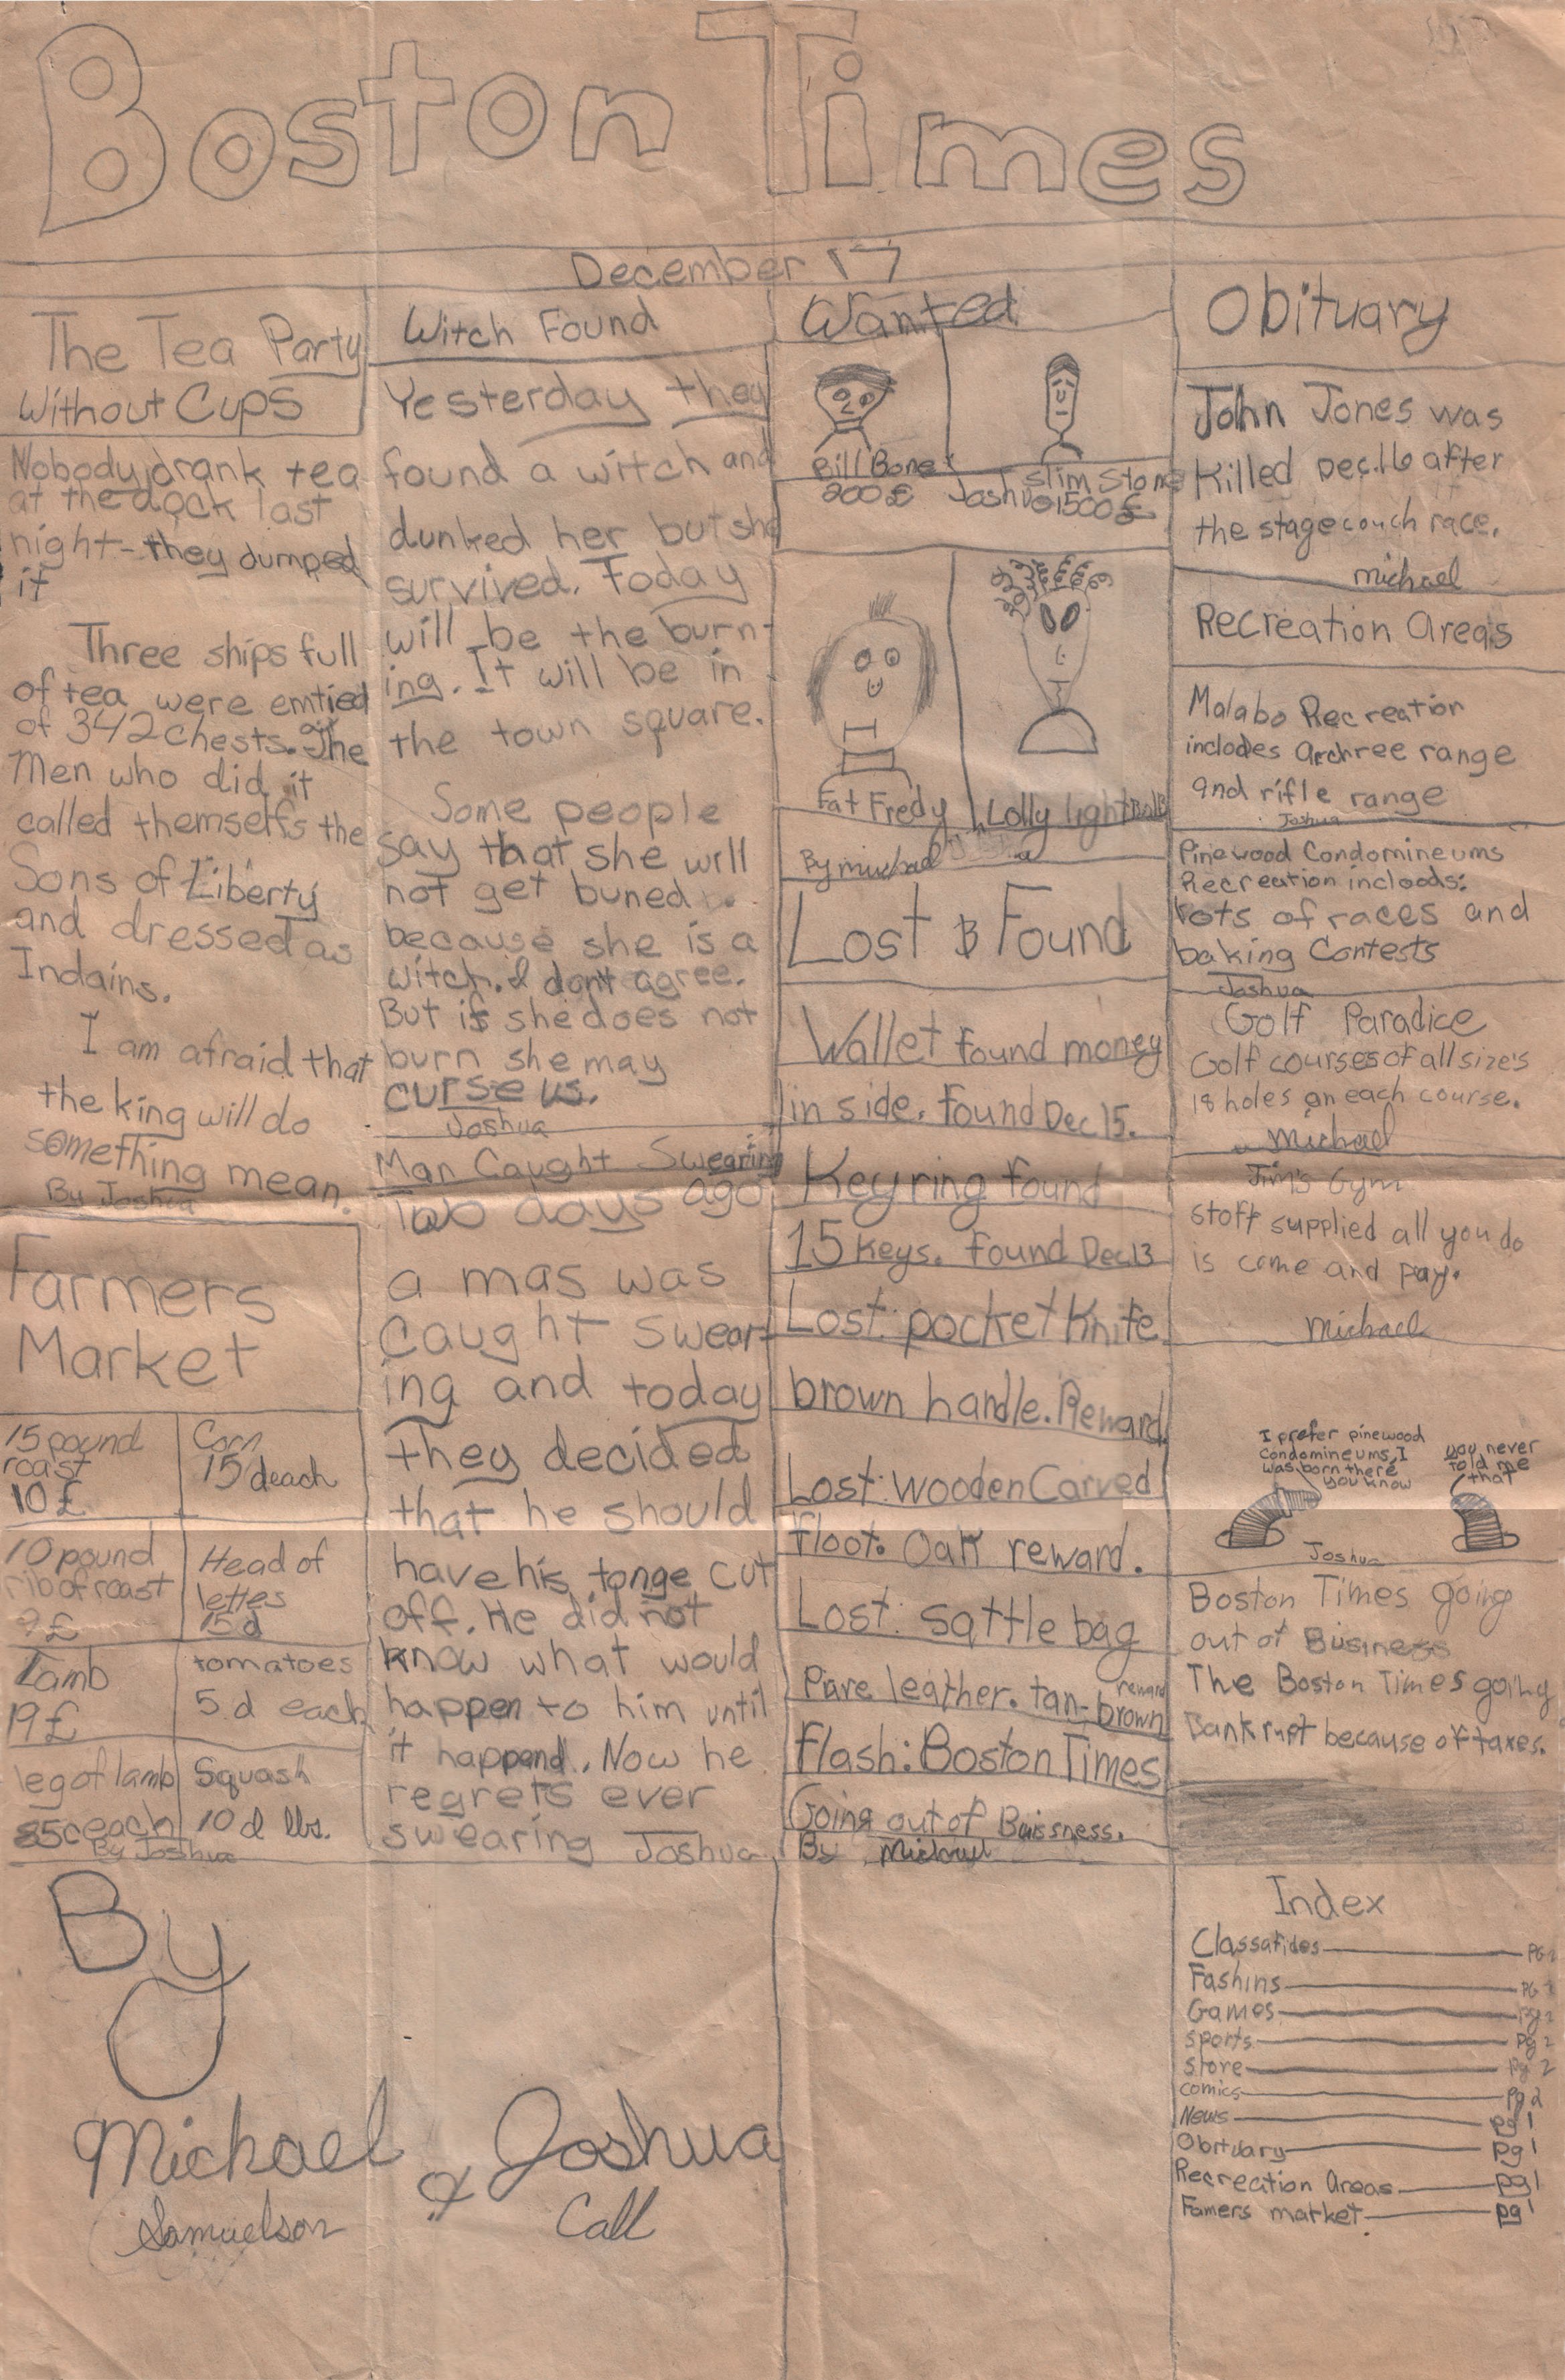 Boston Times
December 17
The Tea Party
Without Cups
Nobody drank tea
at the dock last
night - they dumped
it
Three ships full
of tea were emtied
of 342 chests. The
Men who did it
called themselfs the
Sons of Liberty
and dressed as
Indains.
I am afraid that
the king will do
something mean.
By Joshua
Farmers
Market
15 pound
roast
10£
Corn
15 d each
10 pound
rib of roast
9£
Head of
lettes
15 d
Lamb
19£
tomatoes
5 d each
leg of lamb
85c each
Squash
10 d lbs.
By Joshua
Witch Found
Yesterday they
found a witch and
dunked her but she
survived. Today
will be the burn-
ing. It will be in
the town square.
Some people
say that she will
not get buned
because she is a
witch. I dont agree.
But if she does not
burn she may
curse us.
Joshua
Man Caught Swearing
Two days ago
a mas was
caught swear-
ing and today
they decided
that he should
have his tonge cut
off. He did not
know what would
happen to him until
it happend. Now he
regrets ever
swearing Joshua
Wanted
Bill Bone
200£
Slim Stone
Joshua 1500£
Fat Fredy
Lolly lightBulb
By michael
Lost & Found
Wallet found money
in side. found Dec 15.
Key ring found
15 keys. found Dec 13
Lost: pocket Knife
brown handle. Reward.
Lost: wooden Carved
floot. Oak reward.
Lost: sattle bag
Pure leather. tan-brown
reward
Flash: Boston Times
Going out of Buissness.
By Michael
Obituary
John Jones was
Killed Dec. 16 after
the stagecouch race.
michael
Recreation Areas
Malabo Recreation
includes Archree range
and rifle range
Joshua
Pinewood Condomineums
Recreation incloods:
lots of races and
baking Contests
Joshua
Golf Paradice
Golf courses of all size's
18 holes on each course.
michael
Jim's Gym
stoff supplied all you do
is come and pay.
michael
I prefer pinewood
Condomineums, I
was born there
you know
you never
told me
that
Joshua
Boston Times going
out of Business
The Boston Times going
Bankrupt because of taxes.
Index
Classafides pg
Fashins pg
Games pg 2
sports pg 2
store pg 2
comics pg 2
News pg 1
Obituary pg 1
Recreation Areas pg 1
Famers market pg 1
By
Michael & Joshua
Samuelson Call